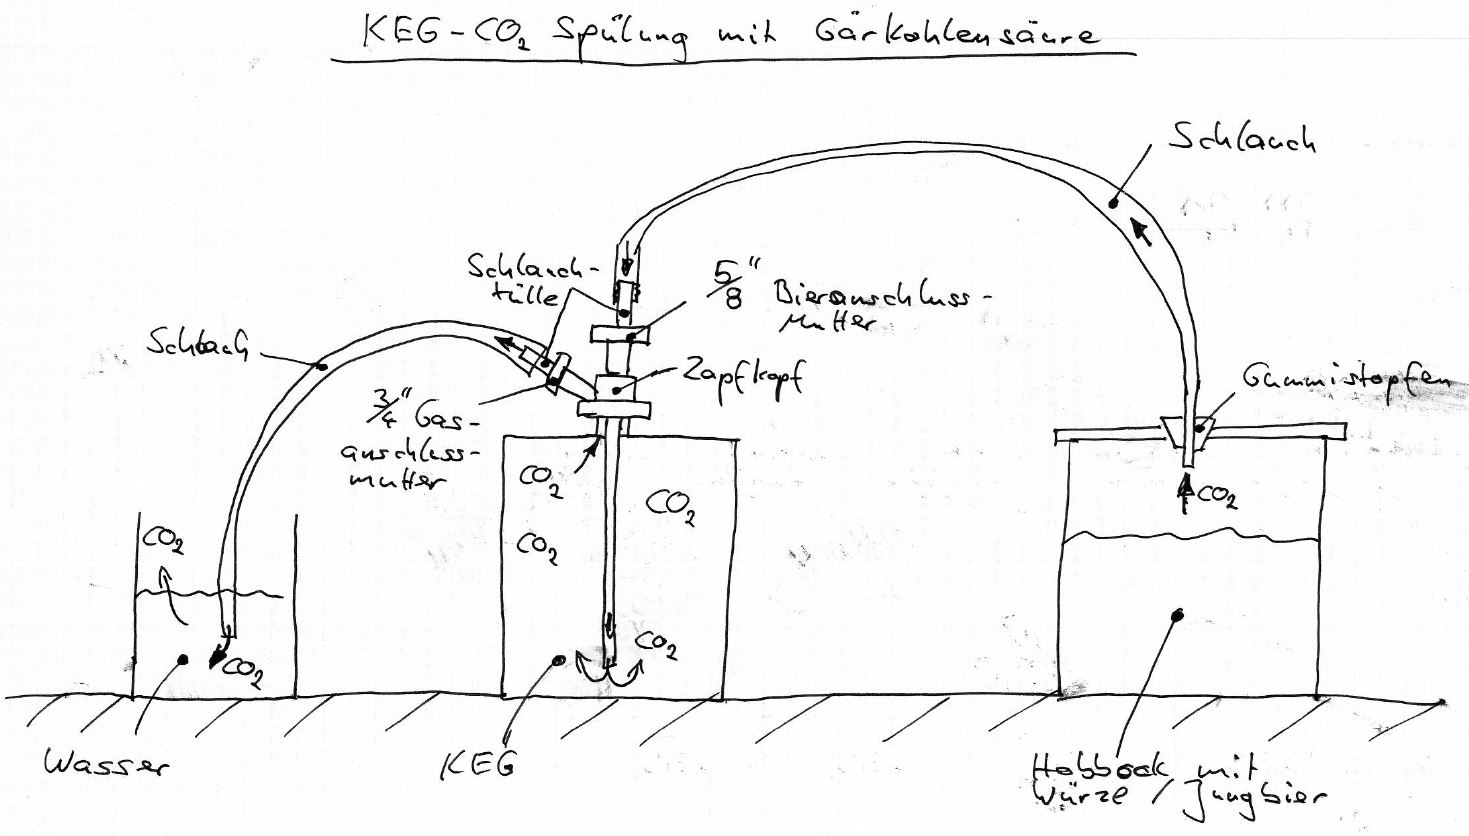 KEG-CO₂ Spülung mit Gärkohlensäure
Schlauch
Schlauch-
tülle
5/8" Bieranschluss-
Mutter
Schlach
Zapfkopf
Gummistopfen
3/4" Gas-
anschluss-
mutter
CO₂
CO₂
CO₂
CO₂
CO₂
CO₂
CO₂
Wasser
KEG
Hobbock mit
Würze / Jungbier